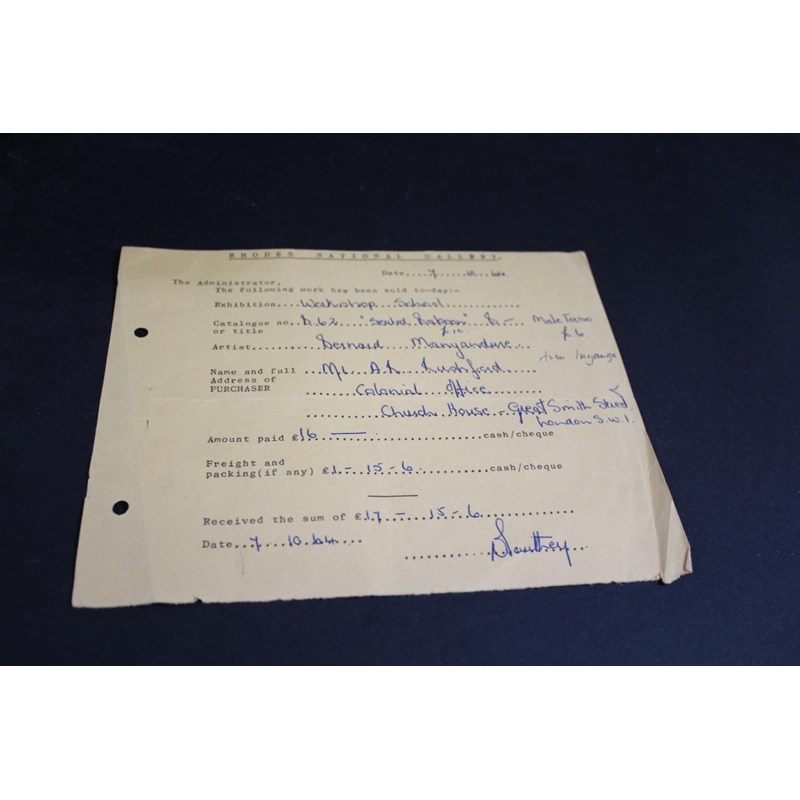 RHODES NATIONAL GALLERY.
Date....7.....10...64
The Administrator,
The following work has been sold to-day:-
Exhibition....Workshop School..............
Catalogue no..B.62 "Seated Baboon" &-
or title £10
Male Torso
£6
Artist.........Bernard Manyandure...
from Inyanga
Name and full ...Mr. A.N. Rushford......
Address of ........Colonial Office..........
PURCHASER ............Church House - Great Smith Street
London S.W.1.
Amount paid £16 ——....................cash/cheque
Freight and
packing(if any) £1.-.15-.6..............cash/cheque
Received the sum of £17.-..15-.6................
Date...7...10.64....